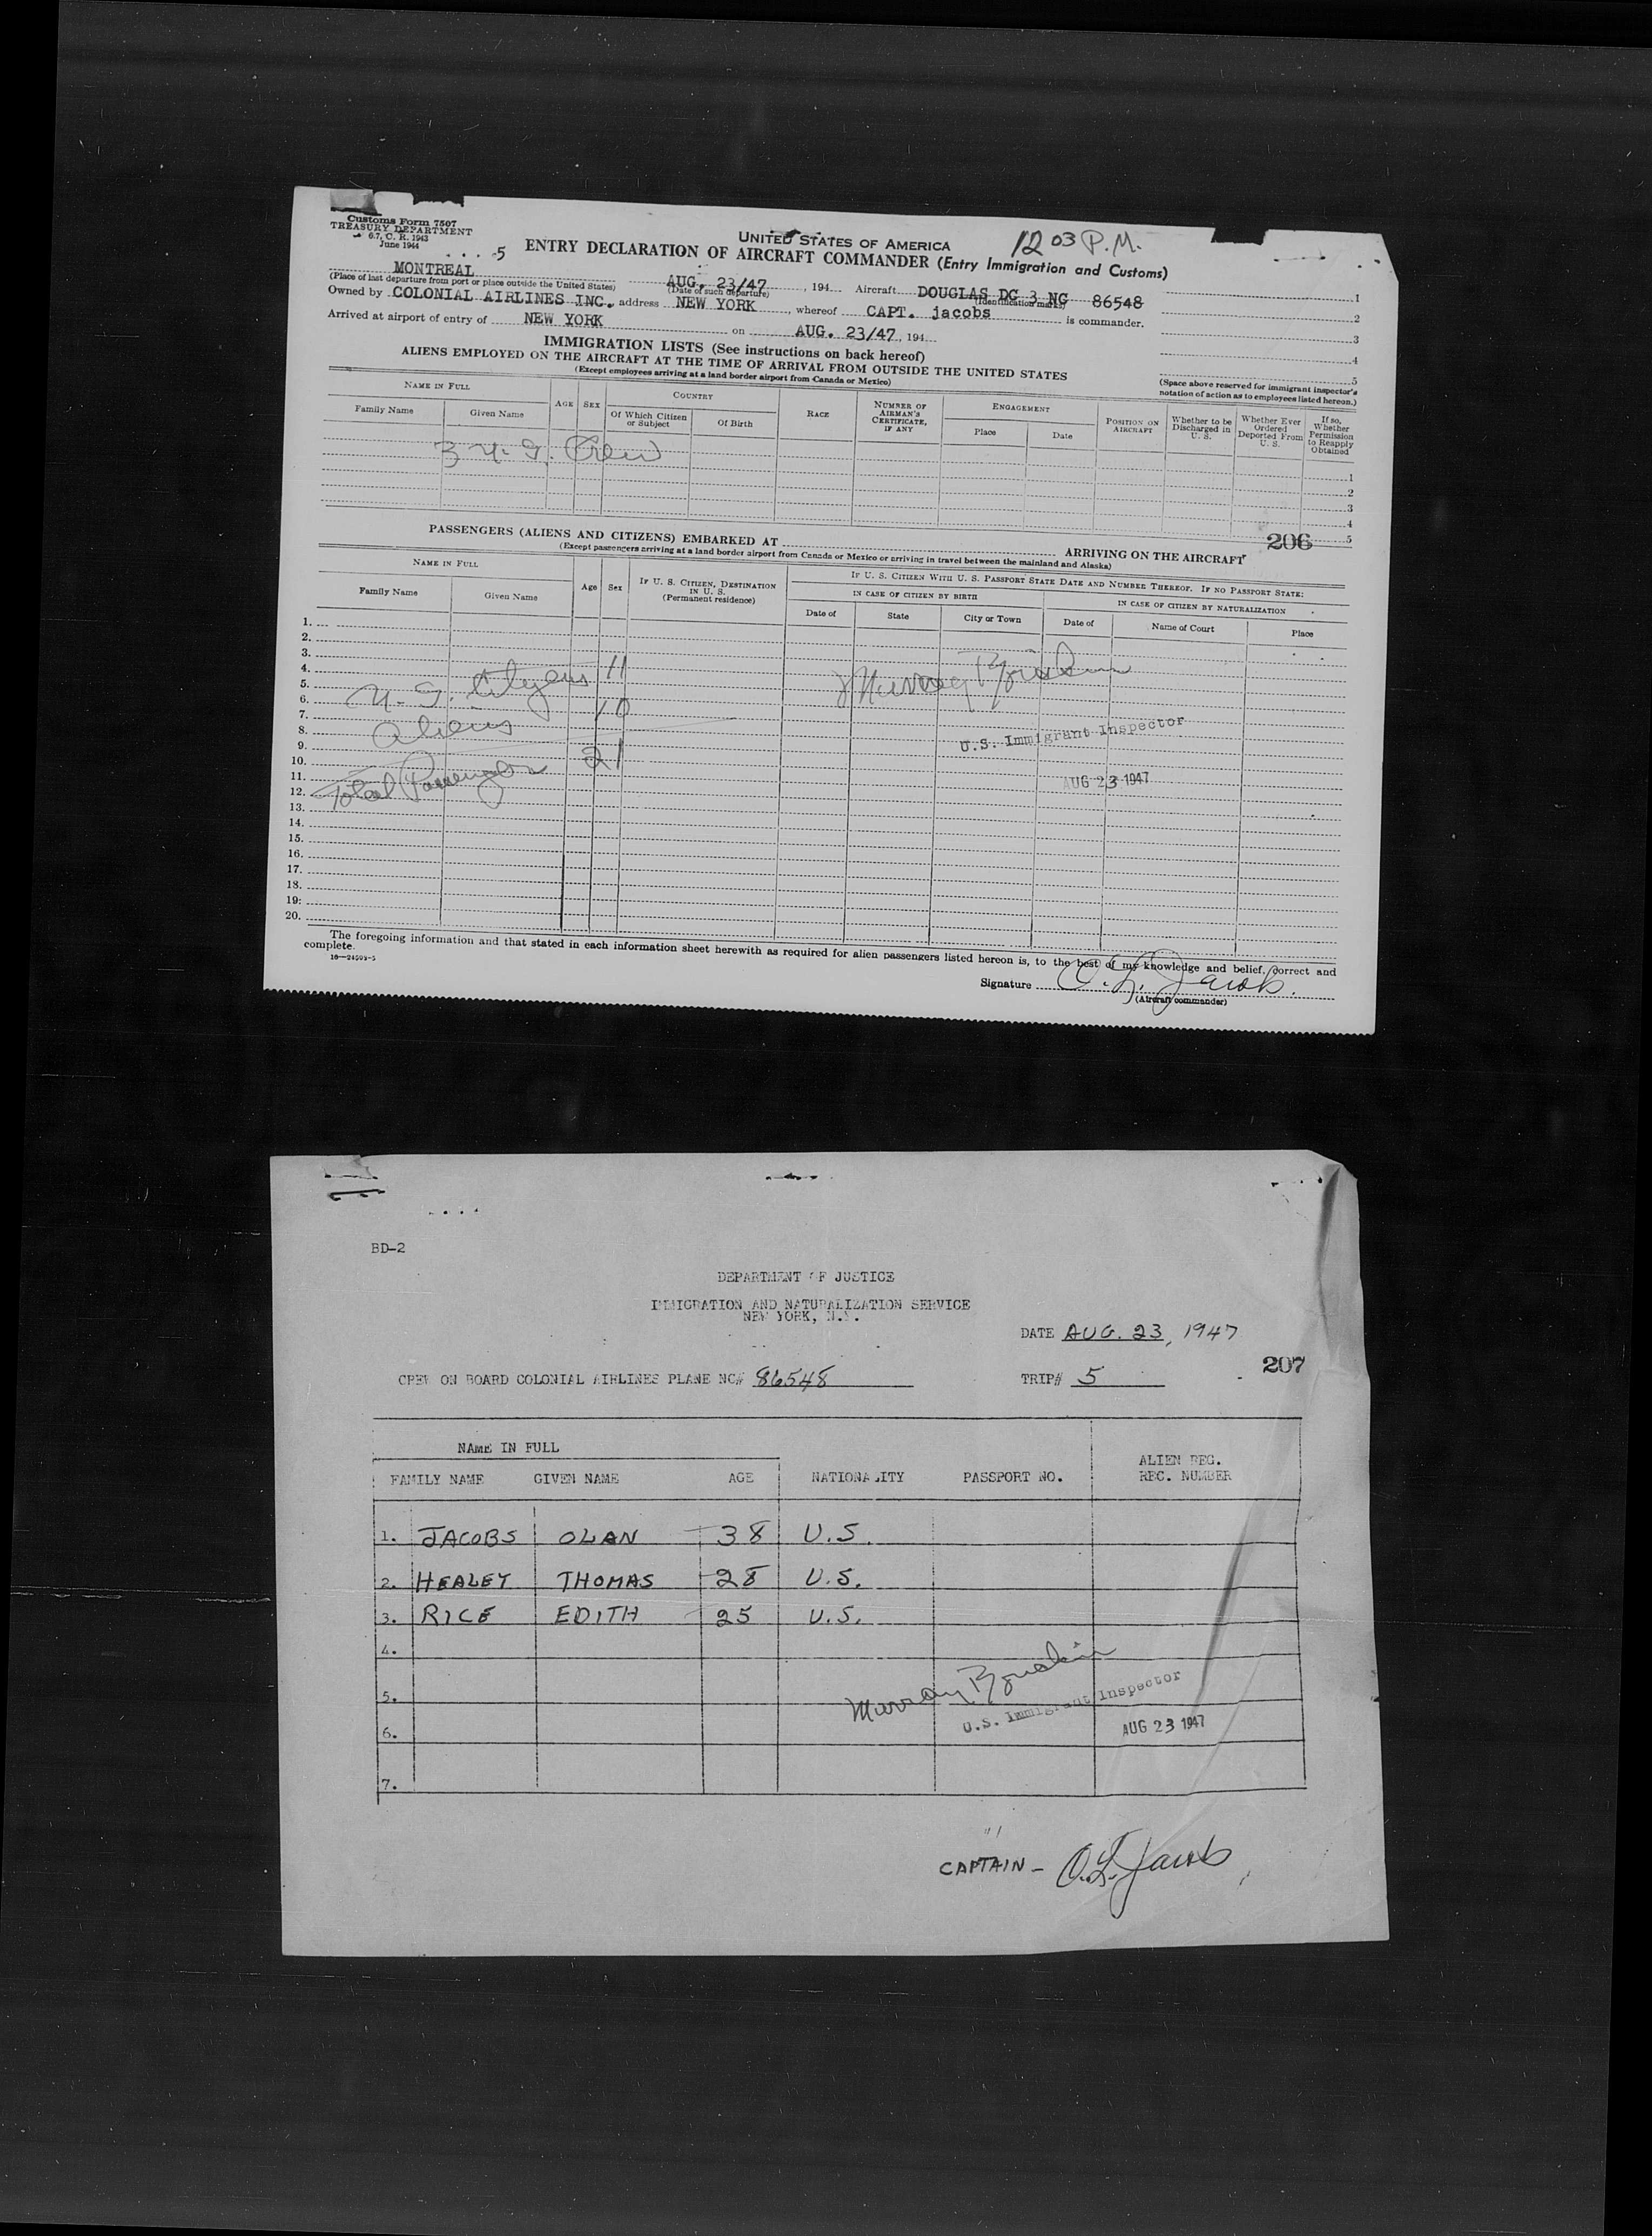 Customs Form 7507
TREASURY DEPARTMENT
6.7, C. R. 1943
June 1944
5
UNITED STATES OF AMERICA
12 03 P.M.
ENTRY DECLARATION OF AIRCRAFT COMMANDER (Entry Immigration and Customs)
MONTREAL AUG. 23/47, 194 Aircraft DOUGLAS DC 3 NC 86548
(Place of last departure from port or place outside the United States) (Date of such departure) (Identification marks)
Owned by COLONIAL AIRLINES INC. address NEW YORK, whereof CAPT. jacobs is commander.
Arrived at airport of entry of NEW YORK on AUG. 23/47, 194
1
2
3
4
5
(Space above reserved for immigrant inspector's notation of action as to employees listed hereon.)
IMMIGRATION LISTS (See instructions on back hereof)
ALIENS EMPLOYED ON THE AIRCRAFT AT THE TIME OF ARRIVAL FROM OUTSIDE THE UNITED STATES
(Except employees arriving at a land border airport from Canada or Mexico)
NAME IN FULL
Family Name Given Name
AGE SEX
COUNTRY
Of Which Citizen or Subject Of Birth
RACE
NUMBER OF AIRMAN'S CERTIFICATE, IF ANY
ENGAGEMENT
Place Date
POSITION ON AIRCRAFT
Whether to be Discharged in U. S.
Whether Ever Ordered Deported From U. S.
If so, Whether Permission to Reapply Obtained
3 U. S. Crew
1
2
3
4
5
206
PASSENGERS (ALIENS AND CITIZENS) EMBARKED AT ARRIVING ON THE AIRCRAFT
(Except passengers arriving at a land border airport from Canada or Mexico or arriving in travel between the mainland and Alaska)
NAME IN FULL
Family Name Given Name
Age Sex
IF U. S. CITIZEN, DESTINATION IN U. S. (Permanent residence)
IF U. S. CITIZEN WITH U. S. PASSPORT STATE DATE AND NUMBER THEREOF. IF NO PASSPORT STATE:
IN CASE OF CITIZEN BY BIRTH
IN CASE OF CITIZEN BY NATURALIZATION
Date of State City or Town Date of Name of Court Place
1.
2.
3.
4.
5.
6.
7.
8.
9.
10.
11.
12.
13.
14.
15.
16.
17.
18.
19.
20.
U. S. Citizens 11
Aliens 10
Total Passengers 21
Murray
U.S. Immigrant Inspector
AUG 23 1947
The foregoing information and that stated in each information sheet herewith as required for alien passengers listed hereon is, to the best of my knowledge and belief, correct and
complete.
16—24509-5
Signature O. L. Jacobs.
(Aircraft commander)
BD-2
DEPARTMENT OF JUSTICE
IMMIGRATION AND NATURALIZATION SERVICE
NEW YORK, N.Y.
DATE AUG. 23, 1947
207
CREW ON BOARD COLONIAL AIRLINES PLANE NC# 86548 TRIP# 5
NAME IN FULL
FAMILY NAME GIVEN NAME AGE NATIONALITY PASSPORT NO. ALIEN REG. REC. NUMBER
1. JACOBS OLAN 38 U.S.
2. HEALEY THOMAS 28 U.S.
3. RICE EDITH 25 U.S.
4.
5.
6.
7.
Murray
U.S. Immigrant Inspector
AUG 23 1947
CAPTAIN - O.L. Jacobs